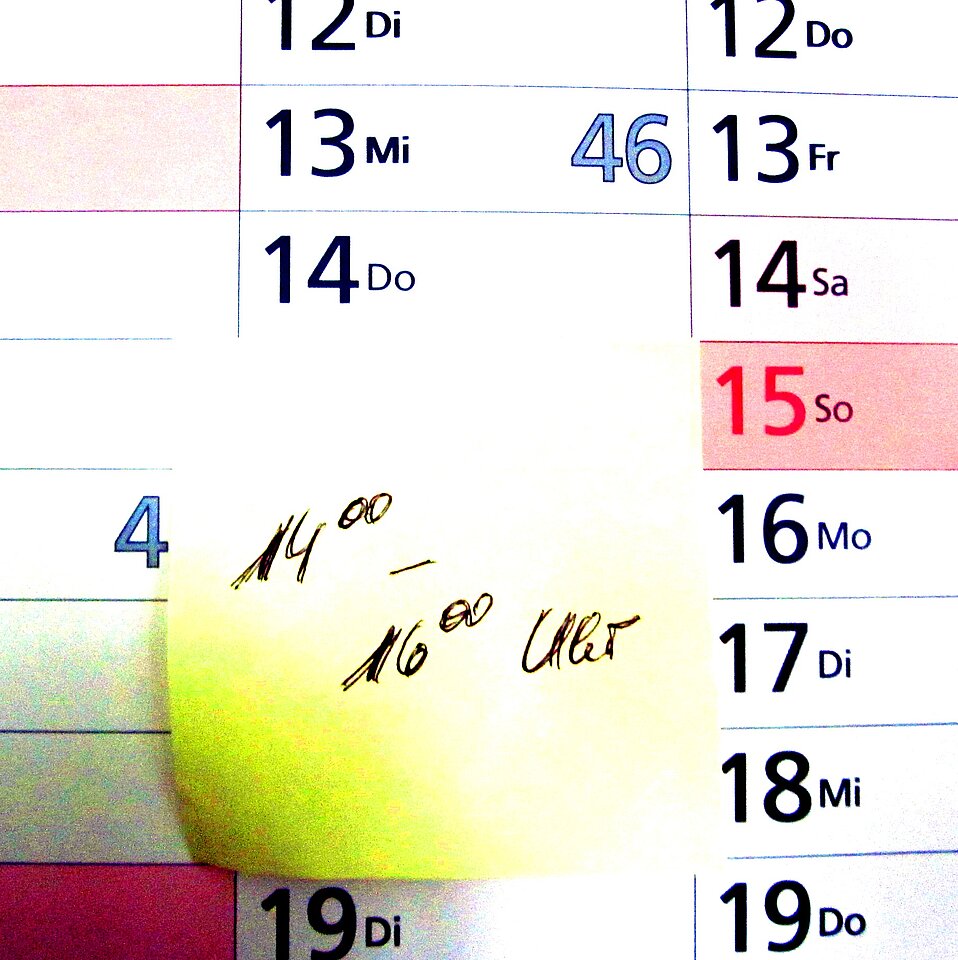 12 Di 12 Do
13 Mi 46 13 Fr
14 Do 14 Sa
15 So
4 16 Mo
14⁰⁰ –
16⁰⁰ Uhr
17 Di
18 Mi
19 Di 19 Do